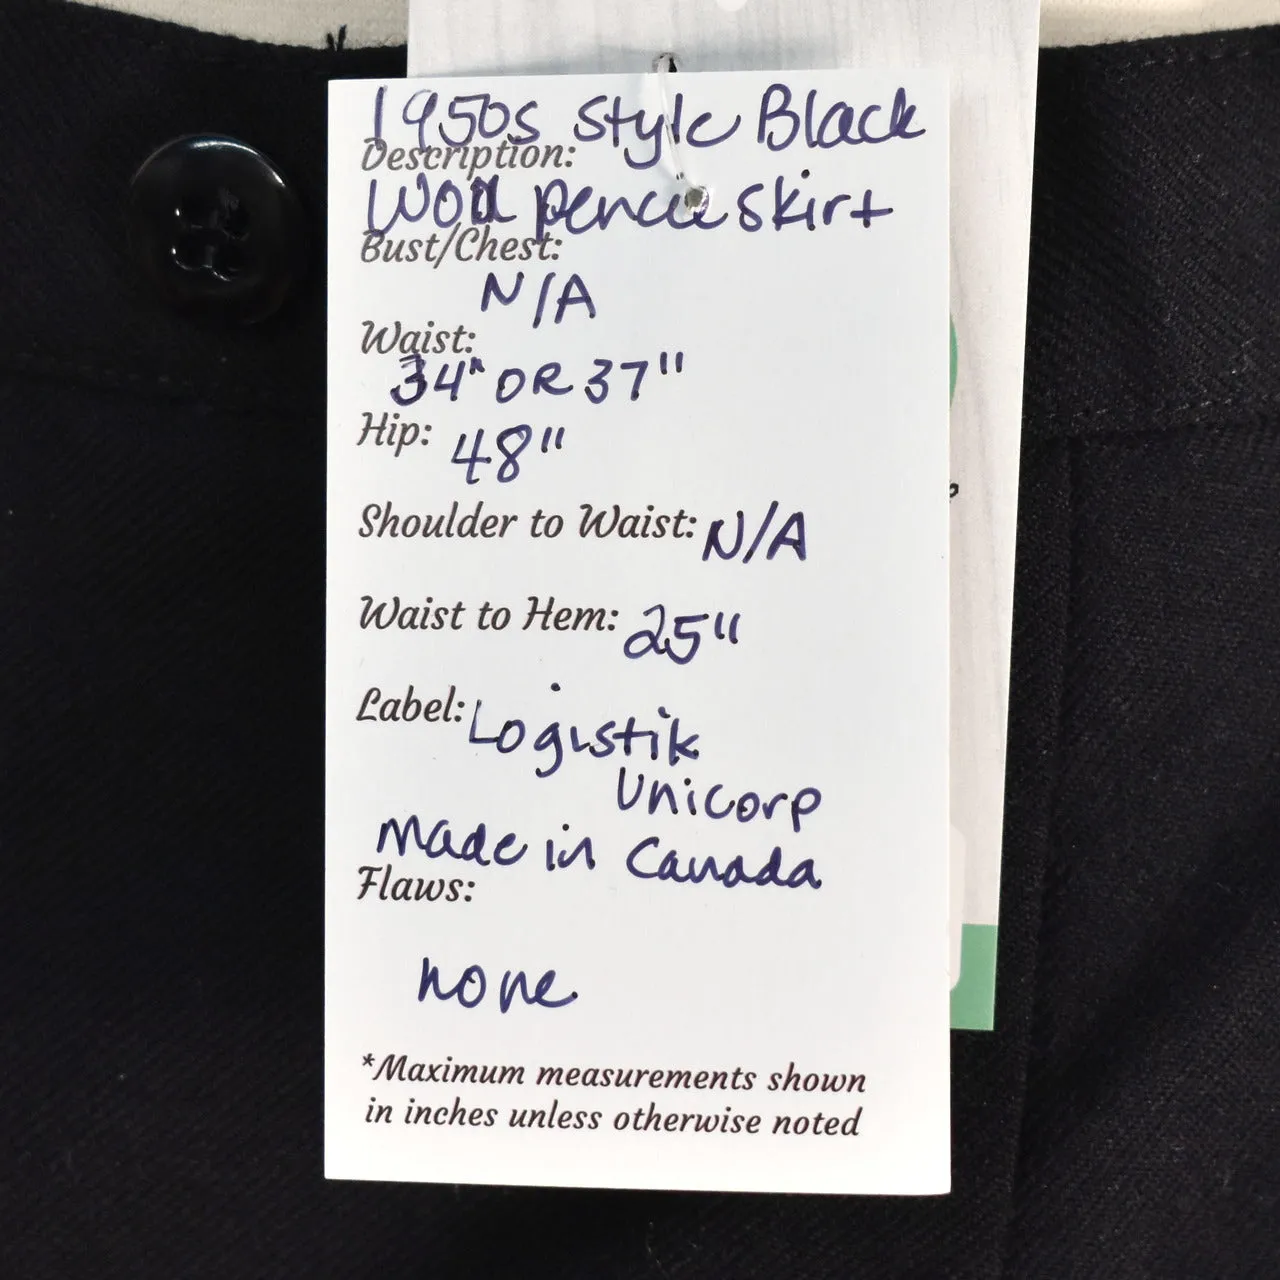 1950s style Black
Description:
Wool pencil skirt
Bust/Chest:
N/A
Waist:
34" OR 37"
Hip: 48"
Shoulder to Waist: N/A
Waist to Hem: 25"
Label: Logistik
Unicorp
made in Canada
Flaws:
none
*Maximum measurements shown
in inches unless otherwise noted